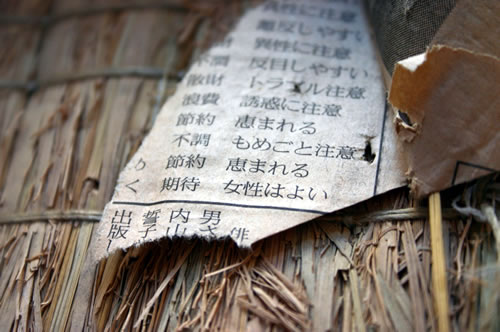 性に注意
反しやす
異性に注意
不調 反目しやすい
散財 トラブル注意
浪費 誘惑に注意
節約 恵まれる
不調 もめごと注意
り 節約 恵まれる
く 期待 女性はよい
俳
男さ
内山
誓子
出版し